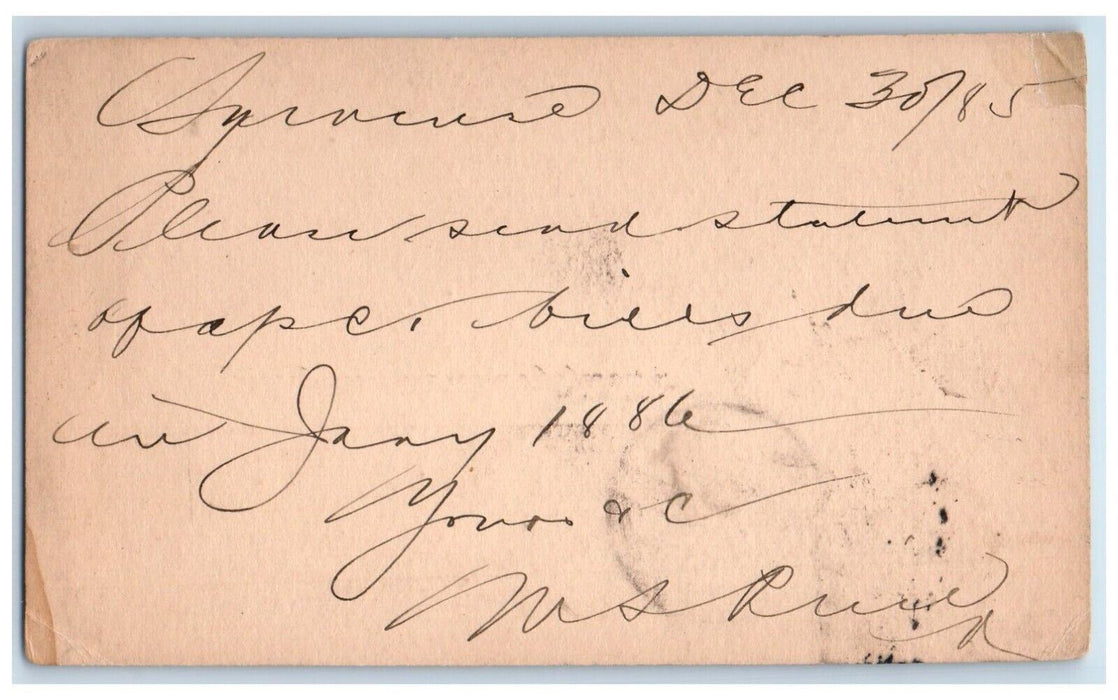 Syracuse Dec 30/85
Please send statement
of a/c. bills due
in Jany 1886
Yours &c
M S